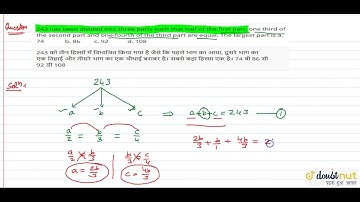 Question
243 has been divided into three parts such that half of the first part, one third of
the second part and one-fourth of the third part are equal. The largest part is a.
74 b. 86 c. 92 d. 108
243 को तीन हिस्सों में विभाजित किया गया है जैसे कि पहले भाग का आधा, दूसरे भाग का
एक तिहाई और तीसरे भाग का एक चौथाई बराबर है। सबसे बड़ा हिस्सा एक है। 74 बी 86 सी
92 डी 108
Solⁿ:
243
a b c ⇒ a+b+c = 243 — ①
a/2 = b/3 = c/4
2b/3 + b/1 + 4b/3 = 2
a/2 = b/3 b/3 = c/4
a = 2b/3 c = 4b/3
doubtnut